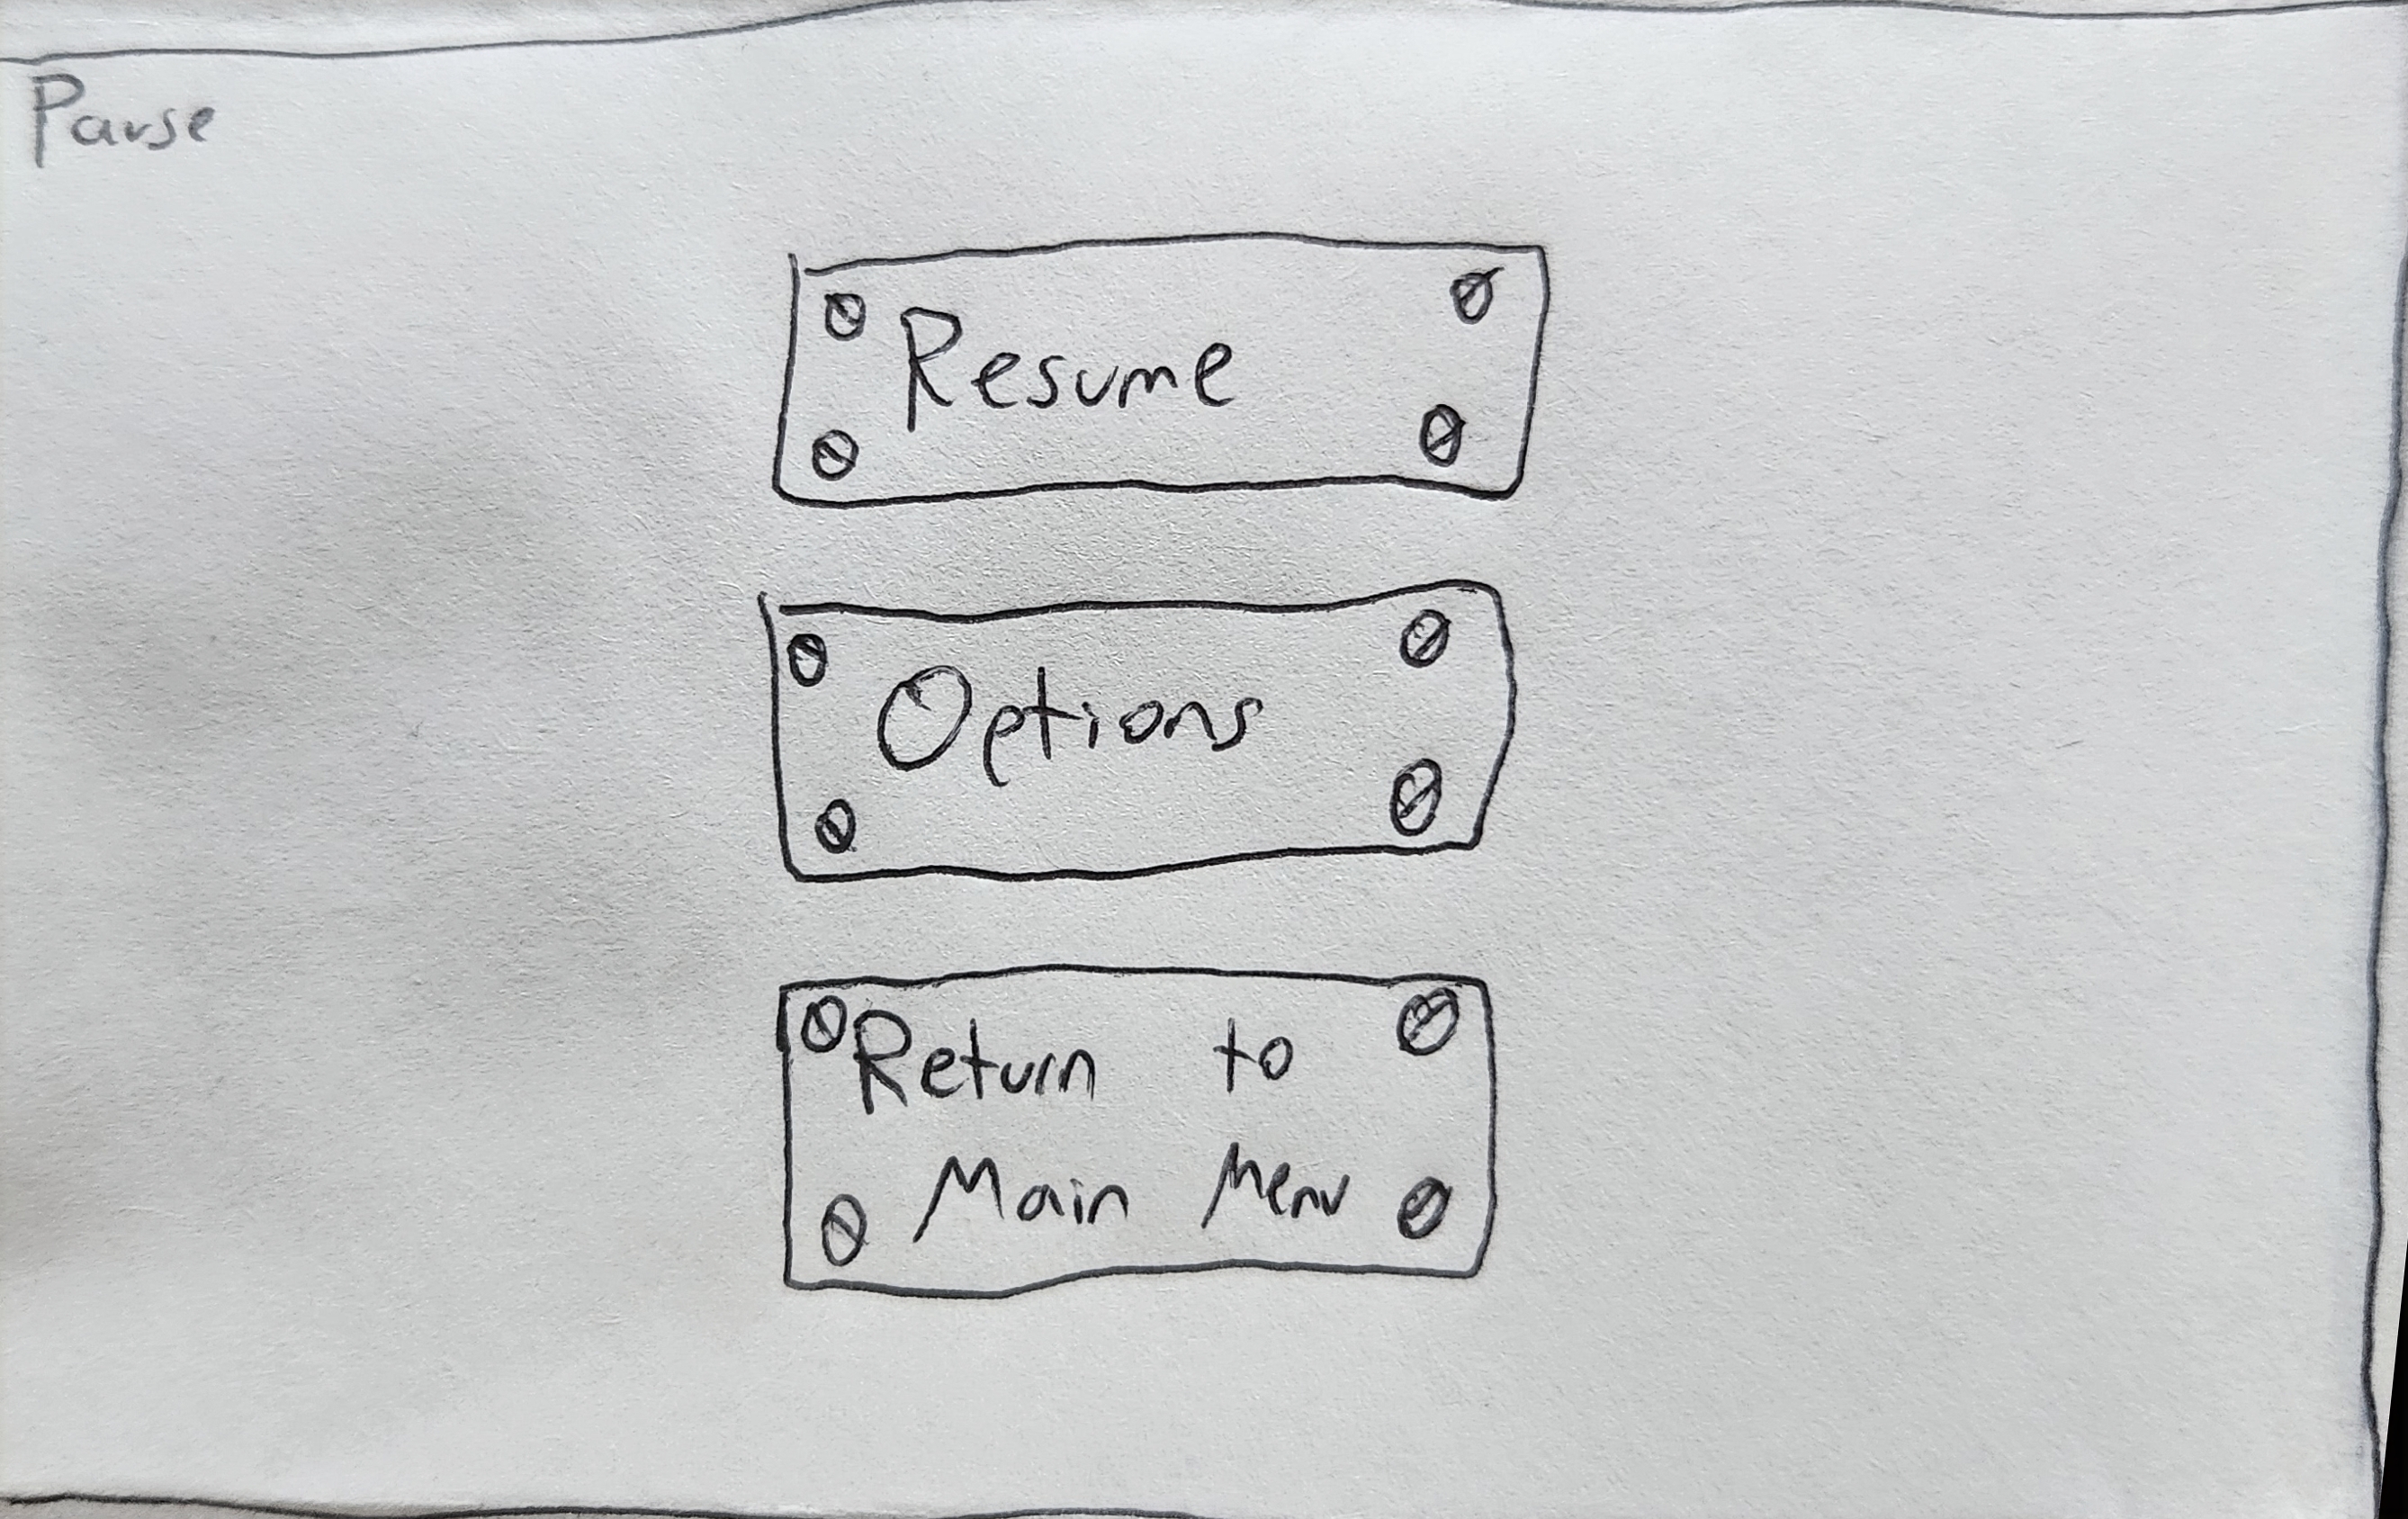 Pause
Resume
Options
Return to
Main Menu